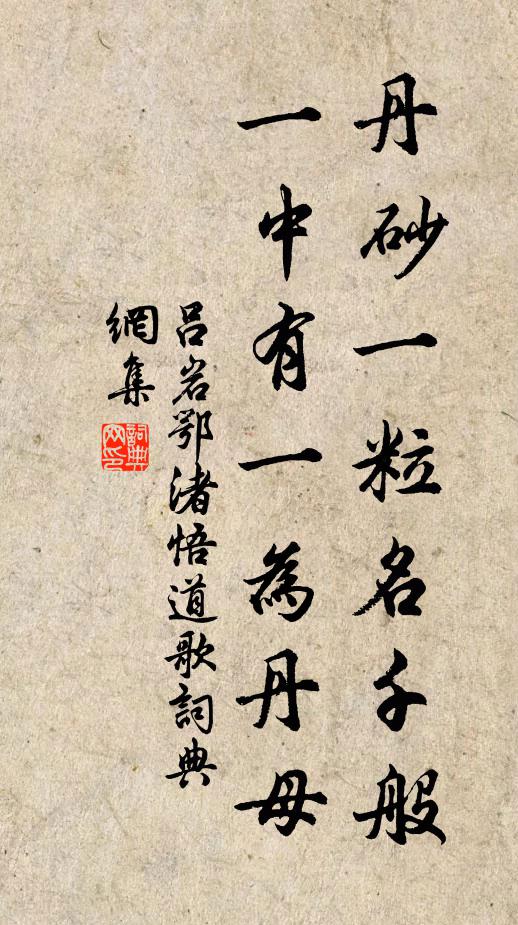 丹砂一粒名千般
一中有一為丹母
吕岩鄂渚悟道歌詞典
網集
詞典網印